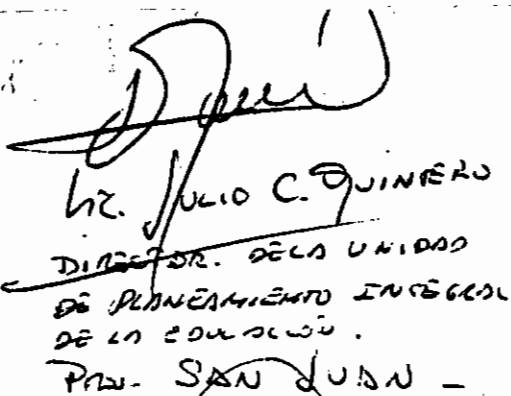 Lic. JULIO C. QUINTERO
DIRECTOR. DE LA UNIDAD
DE PLANEAMIENTO INTEGRAL
DE LA EDUCACIÓN.
Prov. SAN JUAN -